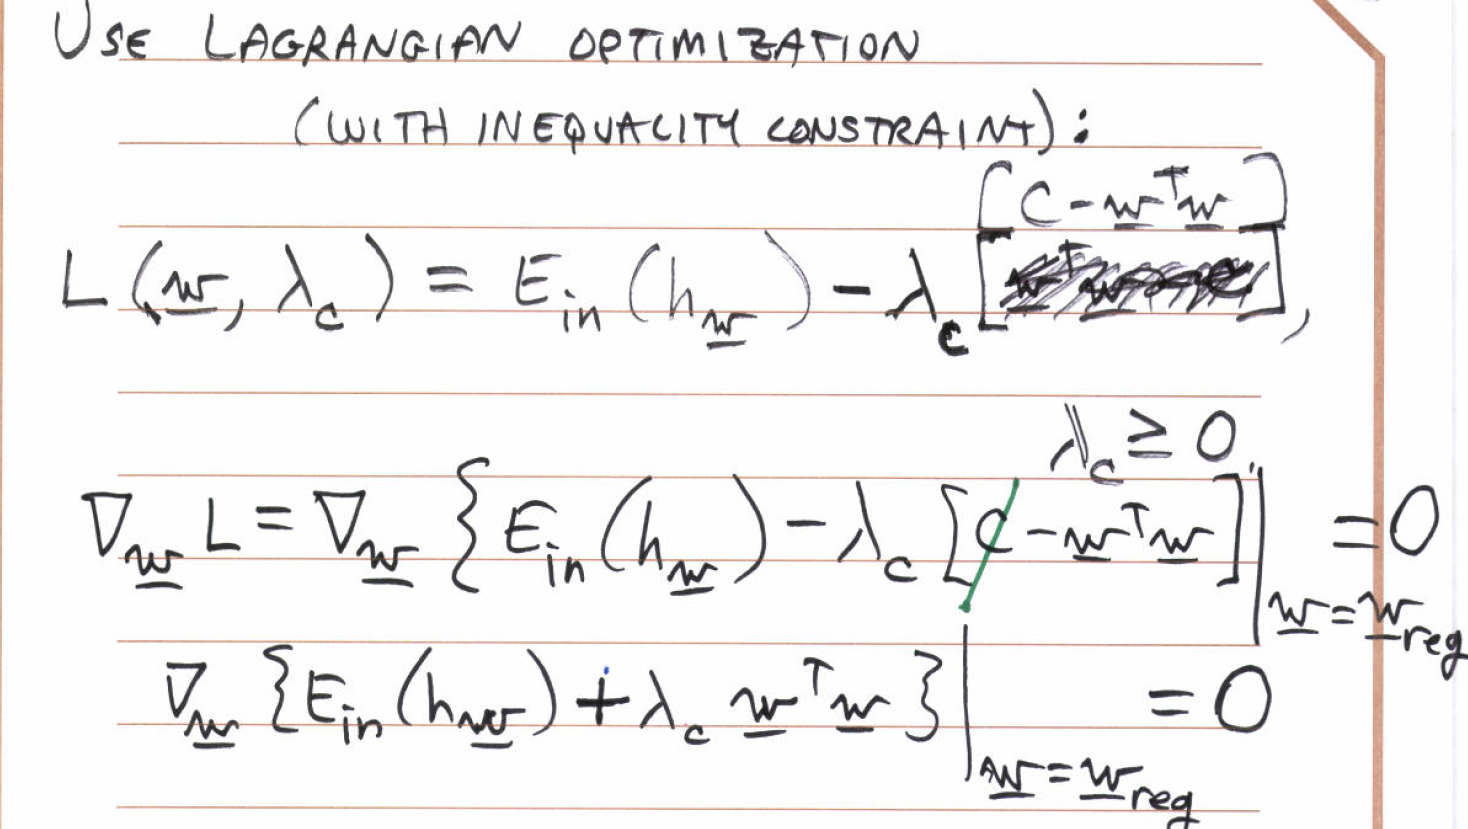 USE LAGRANGIAN OPTIMIZATION
(WITH INEQUALITY CONSTRAINT):
[C - w̲ᵀw̲]
L(w̲, λ_c) = E_in(h_w̲) - λ_c [ ],
λ_c ≥ 0
∇_w̲ L = ∇_w̲ {E_in(h_w̲) - λ_c [C - w̲ᵀw̲]| = 0
w̲ = w̲_reg
∇_w̲ {E_in(h_w̲) + λ_c w̲ᵀw̲}| = 0
w̲ = w̲_reg